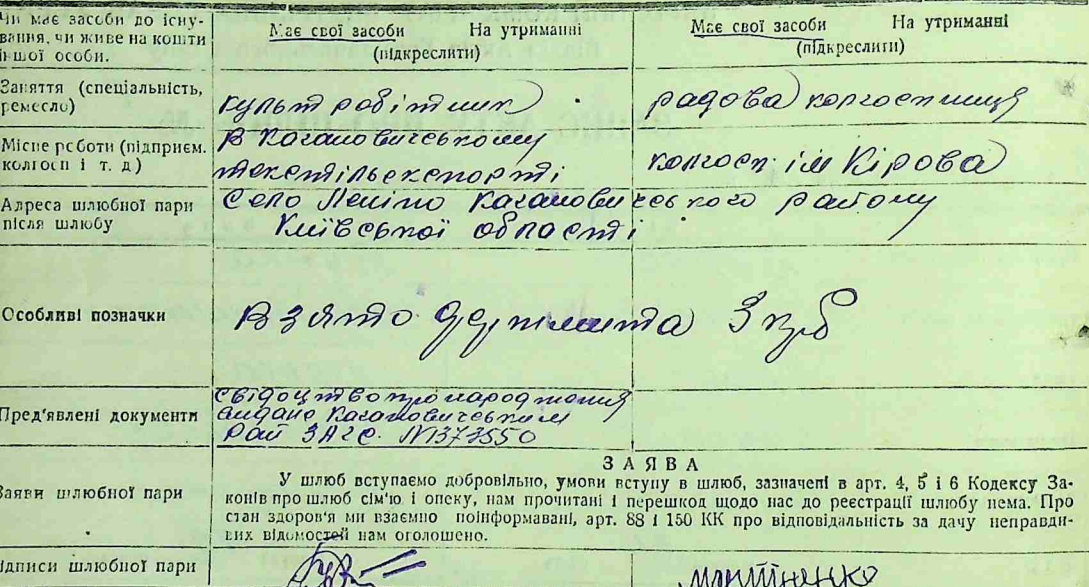 Чи має засоби до існу-
вання, чи живе на кошти
іншої особи.
Має свої засоби На утриманні
(підкреслити)
Має свої засоби На утриманні
(підкреслити)
Заняття (спеціальність,
ремесло)
культробітник
радова колгоспниця
Місце роботи (підприєм.
колгосп і т. д)
в Кагановичському
текстільекспорті
колгосп ім Кірова
Адреса шлюбної пари
після шлюбу
Село Леніно Кагановичського району
Київської області
Особливі позначки
Взято держмита 3 крб
Пред'явлені документи
свідоцтво про народження
видано Кагановичським
Рай ЗАГС. №1373550
Заяви шлюбної пари
ЗАЯВА
У шлюб вступаємо добровільно, умови вступу в шлюб, зазначені в арт. 4, 5 і 6 Кодексу За-
конів про шлюб сім'ю і опеку, нам прочитані і перешкод щодо нас до реєстрації шлюбу нема. Про
стан здоров'я ми взаємно поінформавані, арт. 88 і 150 КК про відповідальність за дачу неправди-
вих відомостей нам оголошено.
Підписи шлюбної пари